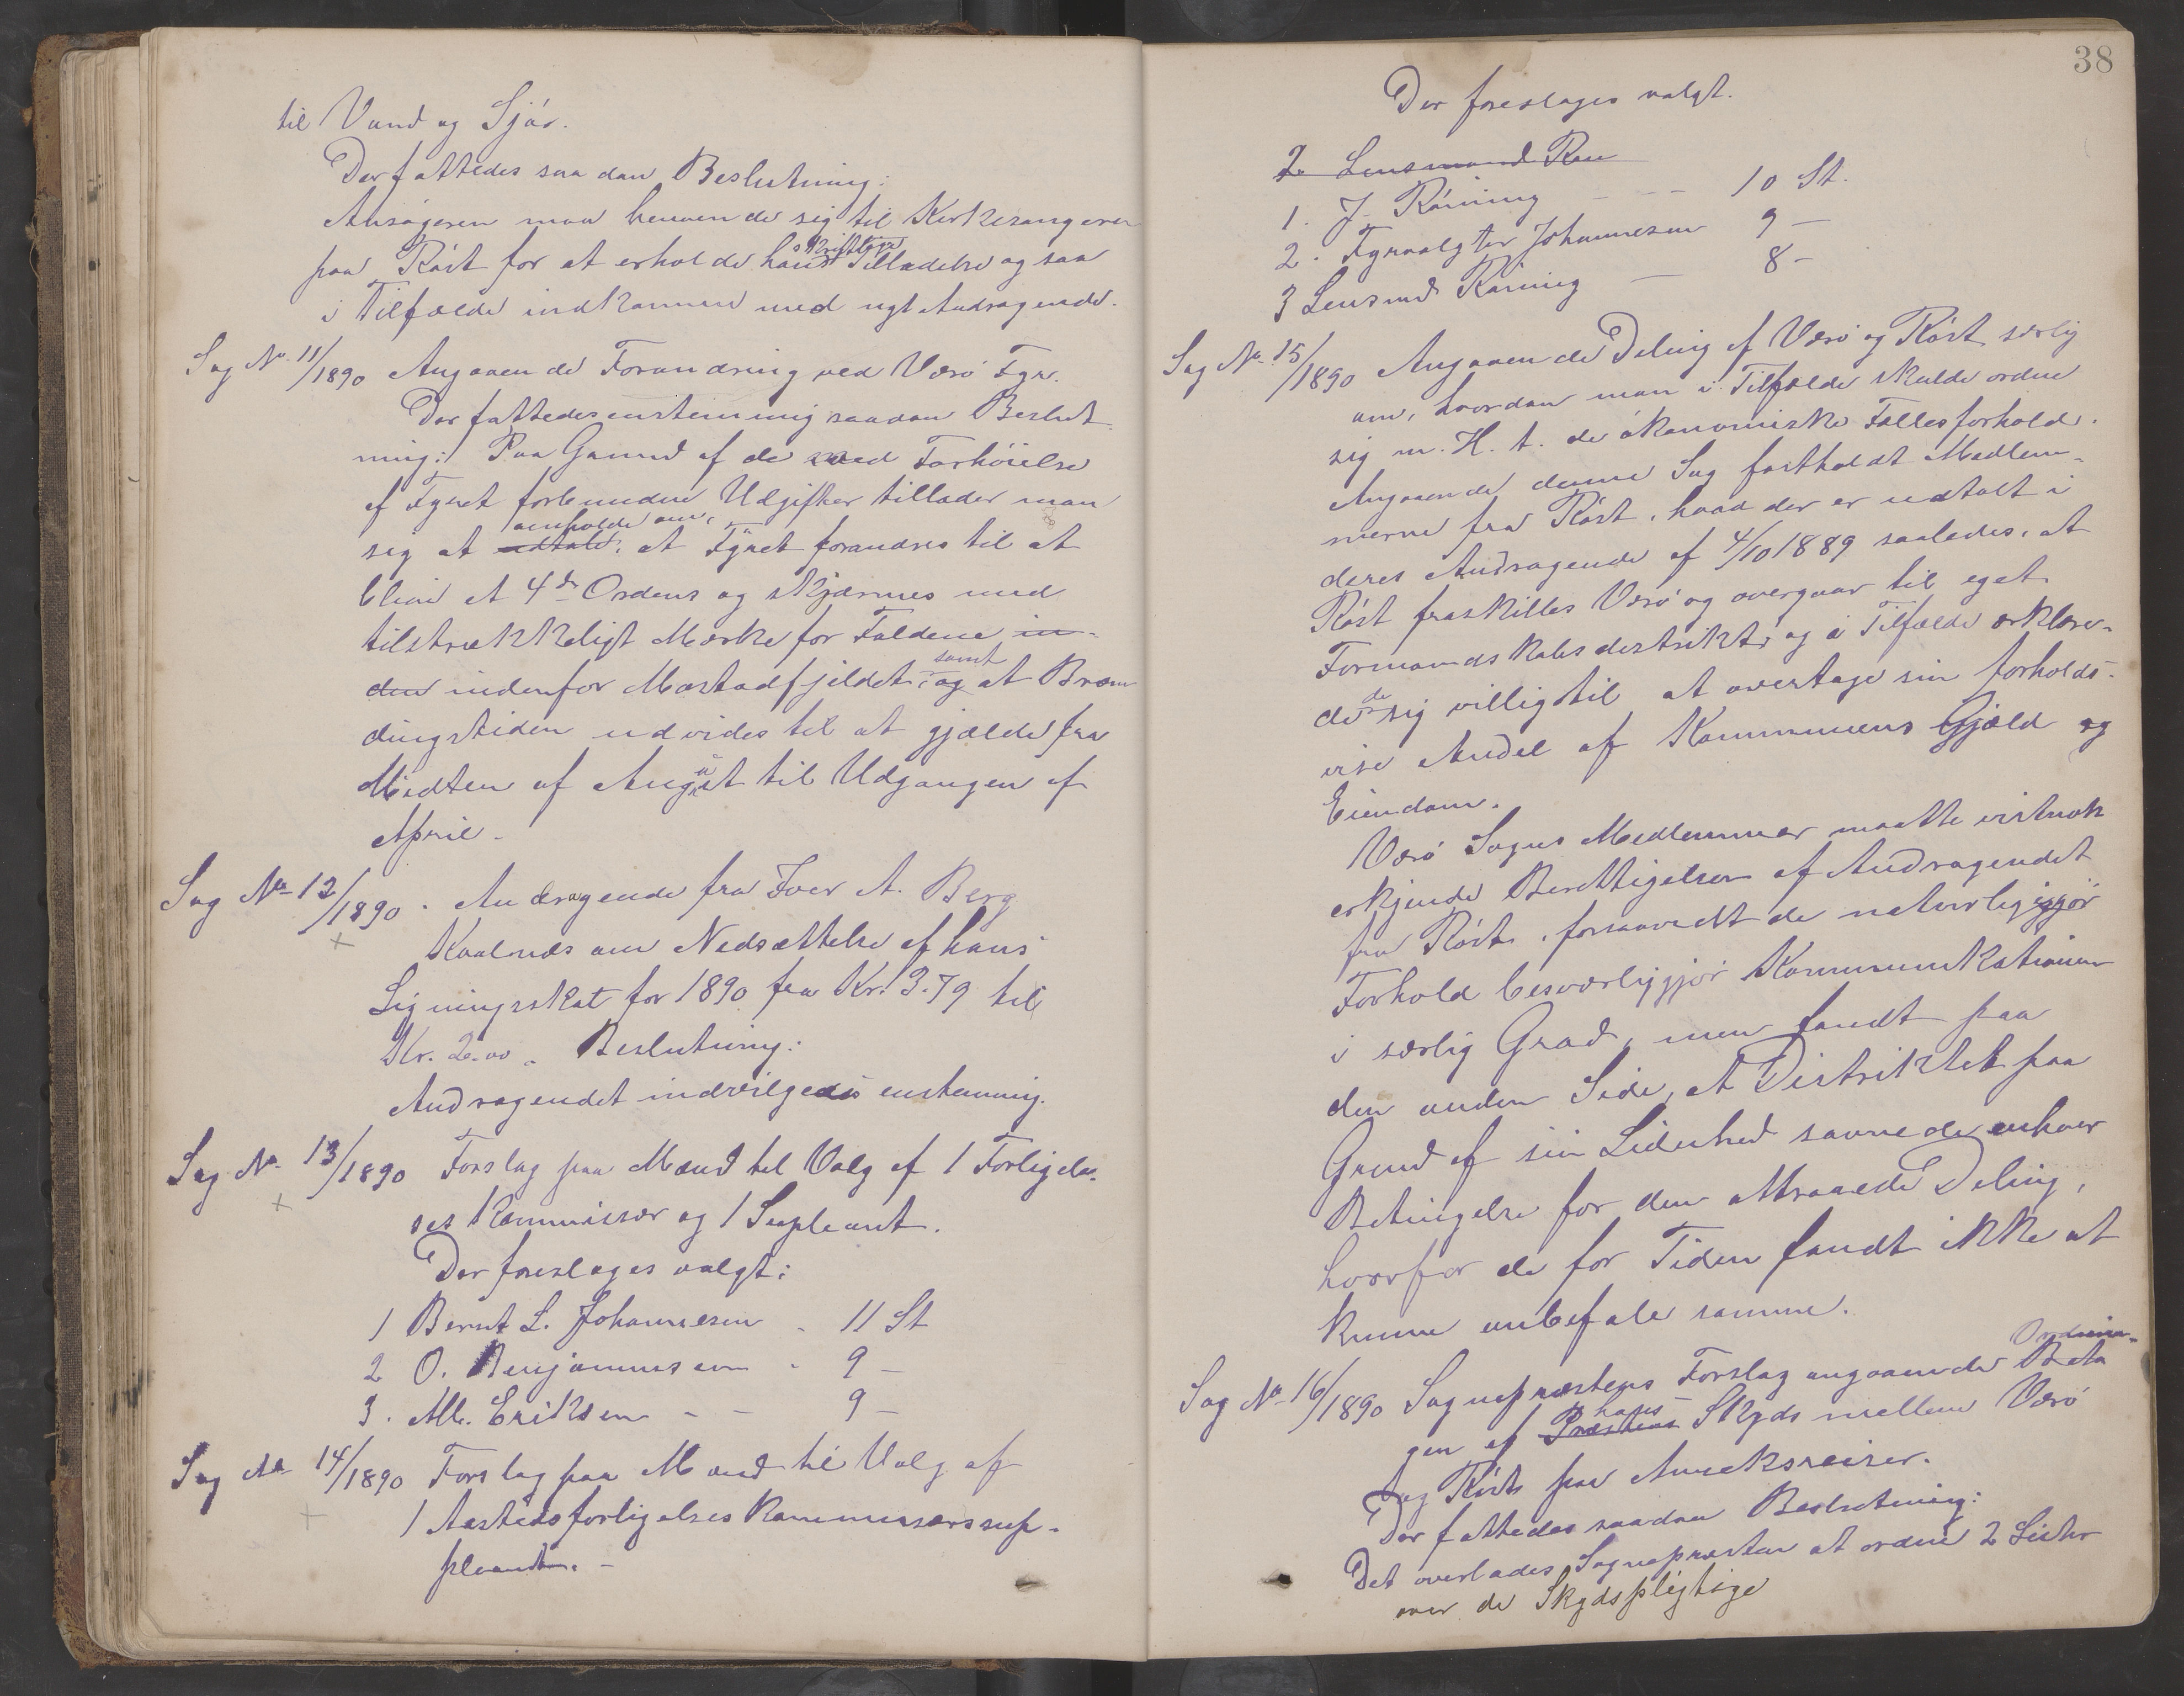 til Vand og Sjør.
Der fattedes saadan Beslutning:
Ansøgeren maa henvende sig til Kirkesangeren
paa Røst for at erholde hans skriftlige Tilladelse og saa
i Tilfælde indkomme med nyt Andragende.
Sag No 11/1890 Angaaende Forandring ved Værø Fyr.
Der fattedes enstemmig saadan Beslut-
ning: Paa Grund af de med Forhøielse
af Fyret forbundne Udgifter tillader man
sig at udtale, anholde om, at Fyret forandres til at
blive et 4de Ordens og skjærmes med
tilstrækkeligt Mærke for Faldene in-
den indenfor Mostadfjeldet, og samt at Bræn
dingstiden udvides til at gjælde fra
Midten af August til Udgangen af
April.
Sag No 12/1890. Andragende fra Iver A. Berg
Kvalnæs om Nedsættelse af hans
Ligningsskat for 1890 fra Kr. 3.79 til
Kr. 2.00. Beslutning:
Andragendet indvilgedes enstemmig.
Sag No 13/1890 Forslag paa Mænd til Valg af 1 Forligel-
ses Kommissær og 1 Supleant.
Der foreslages valgt:
1 Bernt L. Johannesen - 11 St
2 O. Benjaminsen - 9 -
3. Mk. Eriksen - - 9 -
Sag No 14/1890 Forslag paa Mænd til Valg af
1 Aastedsforligelses Kommissærssup-
pleant. -
38
Der foreslages valgt.
2. Lensmand Røn
1. J. Røining - - 10 St.
2. Fyrvogter Johannesen 9 -
3 Lensmd Røining - 8 -
Sag No 15/1890 Angaaende Deling af Værø og Røst særlig
om, hvordan man i Tilfælde skulde ordne
sig m. H. t. de økonomiske Fællesforhold.
Angaaende denne Sag fastholdt Medlem-
merne fra Røst, hvad der er udtalt i
deres Andragende af 4/10 1889 saaledes, at
Røst fraskilles Værø og overgaar til eget
Formandskabsdistrikt, og i Tilfælde erklære-
de de sig villig til at overtage sin forholds-
vise Andel af Kommunens Gjæld og
Eiendom.
Værø Sogns Medlemmer maatte vistnok
erkjende Berettigelsen af Andragendet
fra Røst, forsaavidt de naturlige
Forhold besværliggjør Kommunikationen
i særlig Grad, men fandt paa
den anden Side, at Distriktet paa
Grund af sin Lidenhed savnede enhver
Betingelse for den attraaede Deling,
hvorfor de for Tiden fandt ikke at
kunne anbefale samme.
Sag No 16/1890 Sognepræstens Forslag angaaende Ordnin-
gen af Præstens hans Skyds mellem Værø
og Røst paa Annexreiser.
Der fattedes saadan Beslutning:
Det overlades Sognepræsten at ordne 2 Lister
over de Skydspligtige